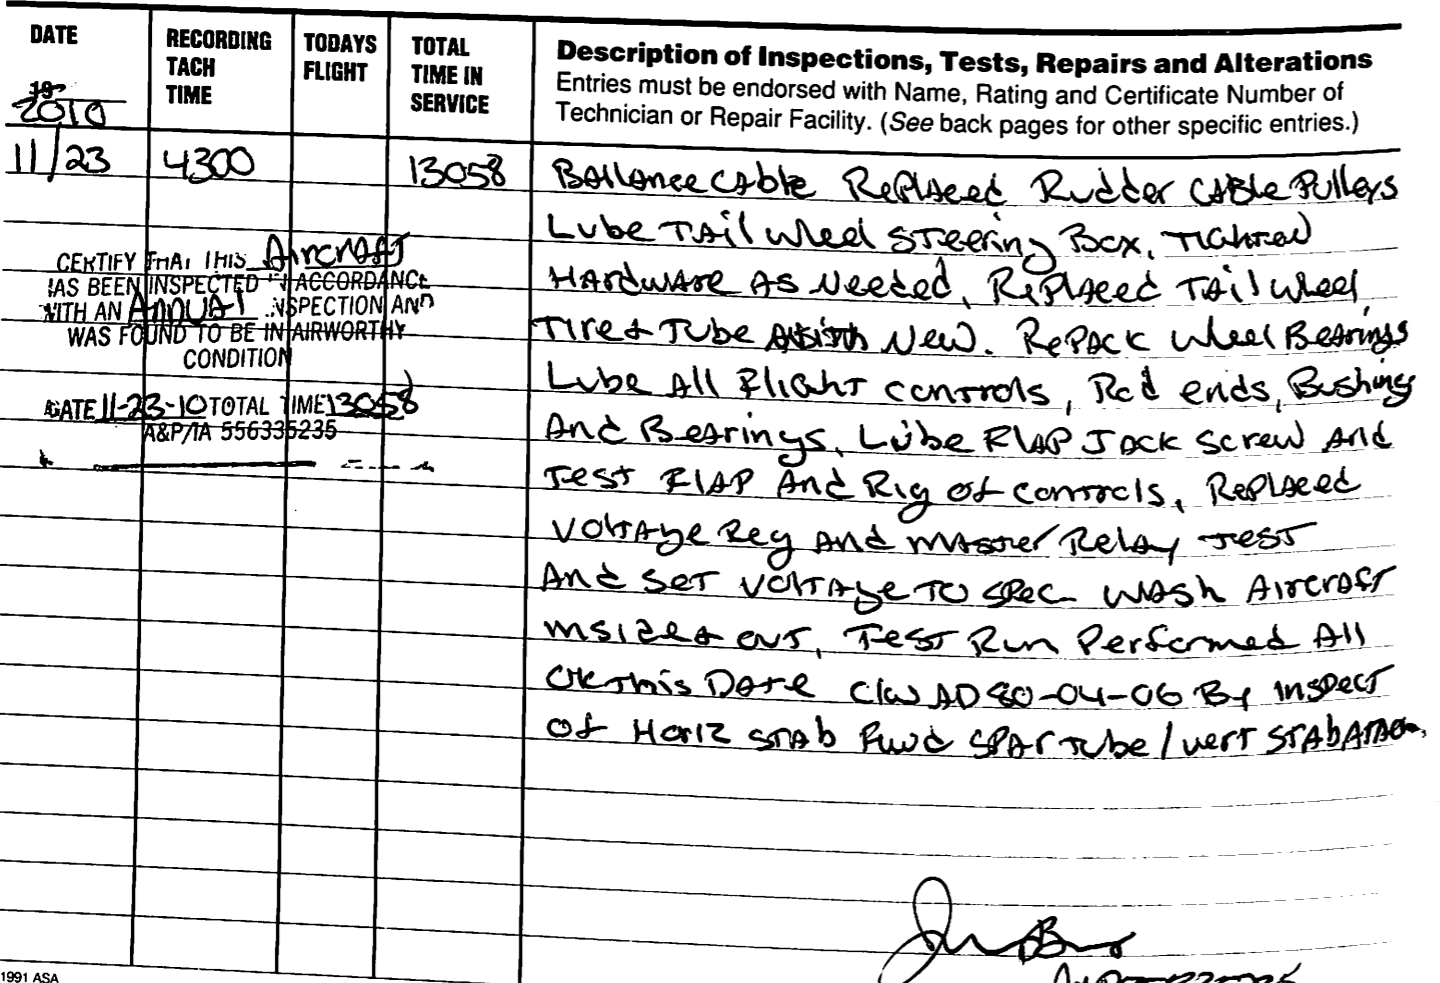 DATE
19
2010
RECORDING
TACH
TIME
TODAYS
FLIGHT
TOTAL
TIME IN
SERVICE
Description of Inspections, Tests, Repairs and Alterations
Entries must be endorsed with Name, Rating and Certificate Number of
Technician or Repair Facility. (See back pages for other specific entries.)
11/23 4300 13058
Ballance Cable Replaced Rudder Cable Pulleys
Lube Tail Wheel Steering Box, Tightned
Hardware As Needed, Replaced Tail Wheel
Tire & Tube With New. Repack Wheel Bearings
Lube All Flight controls, Rod ends, Bushings
And Bearings, Lube Flap Jack Screw And
Test Flap And Rig of controls, Replaced
Voltage Reg And Master Relay Test
And Set Voltage To Spec. Wash Aircraft
Inside & out, Test Run Performed All
Ok This Date C/W AD 80-04-06 By Inspect
Of Horiz Stab Fwd Spar Tube / vert Stab
CERTIFY THAT THIS Aircraft
HAS BEEN INSPECTED IN ACCORDANCE
WITH AN Annual INSPECTION AND
WAS FOUND TO BE IN AIRWORTHY
CONDITION
DATE 11-23-10 TOTAL TIME 13058
A&P/IA 556335235
1991 ASA